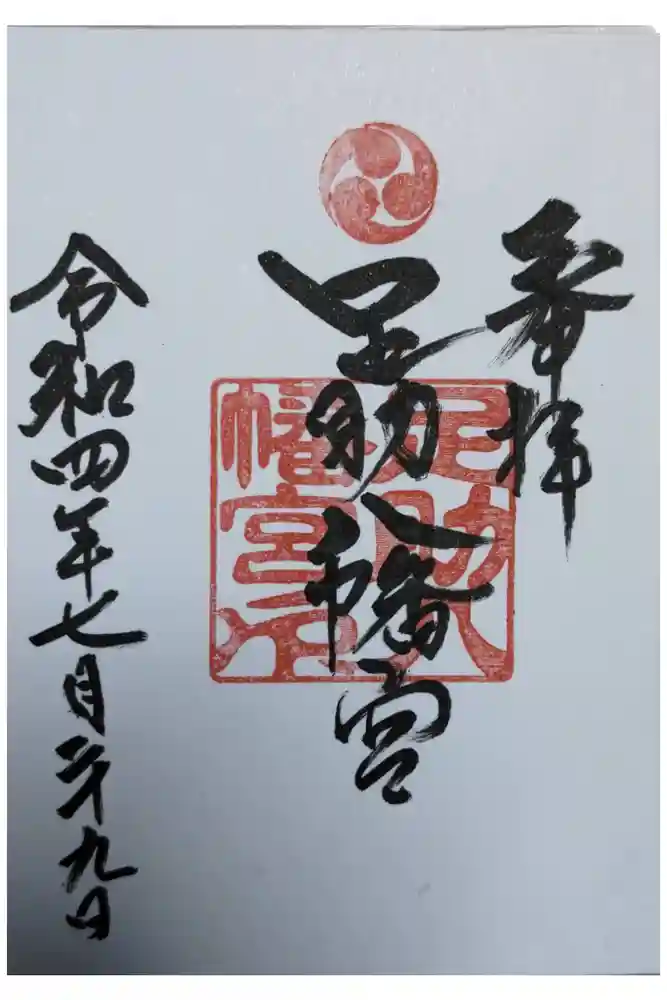 奉拝
足助八幡宮
足助八
幡宮印
令和四年七月二十九日